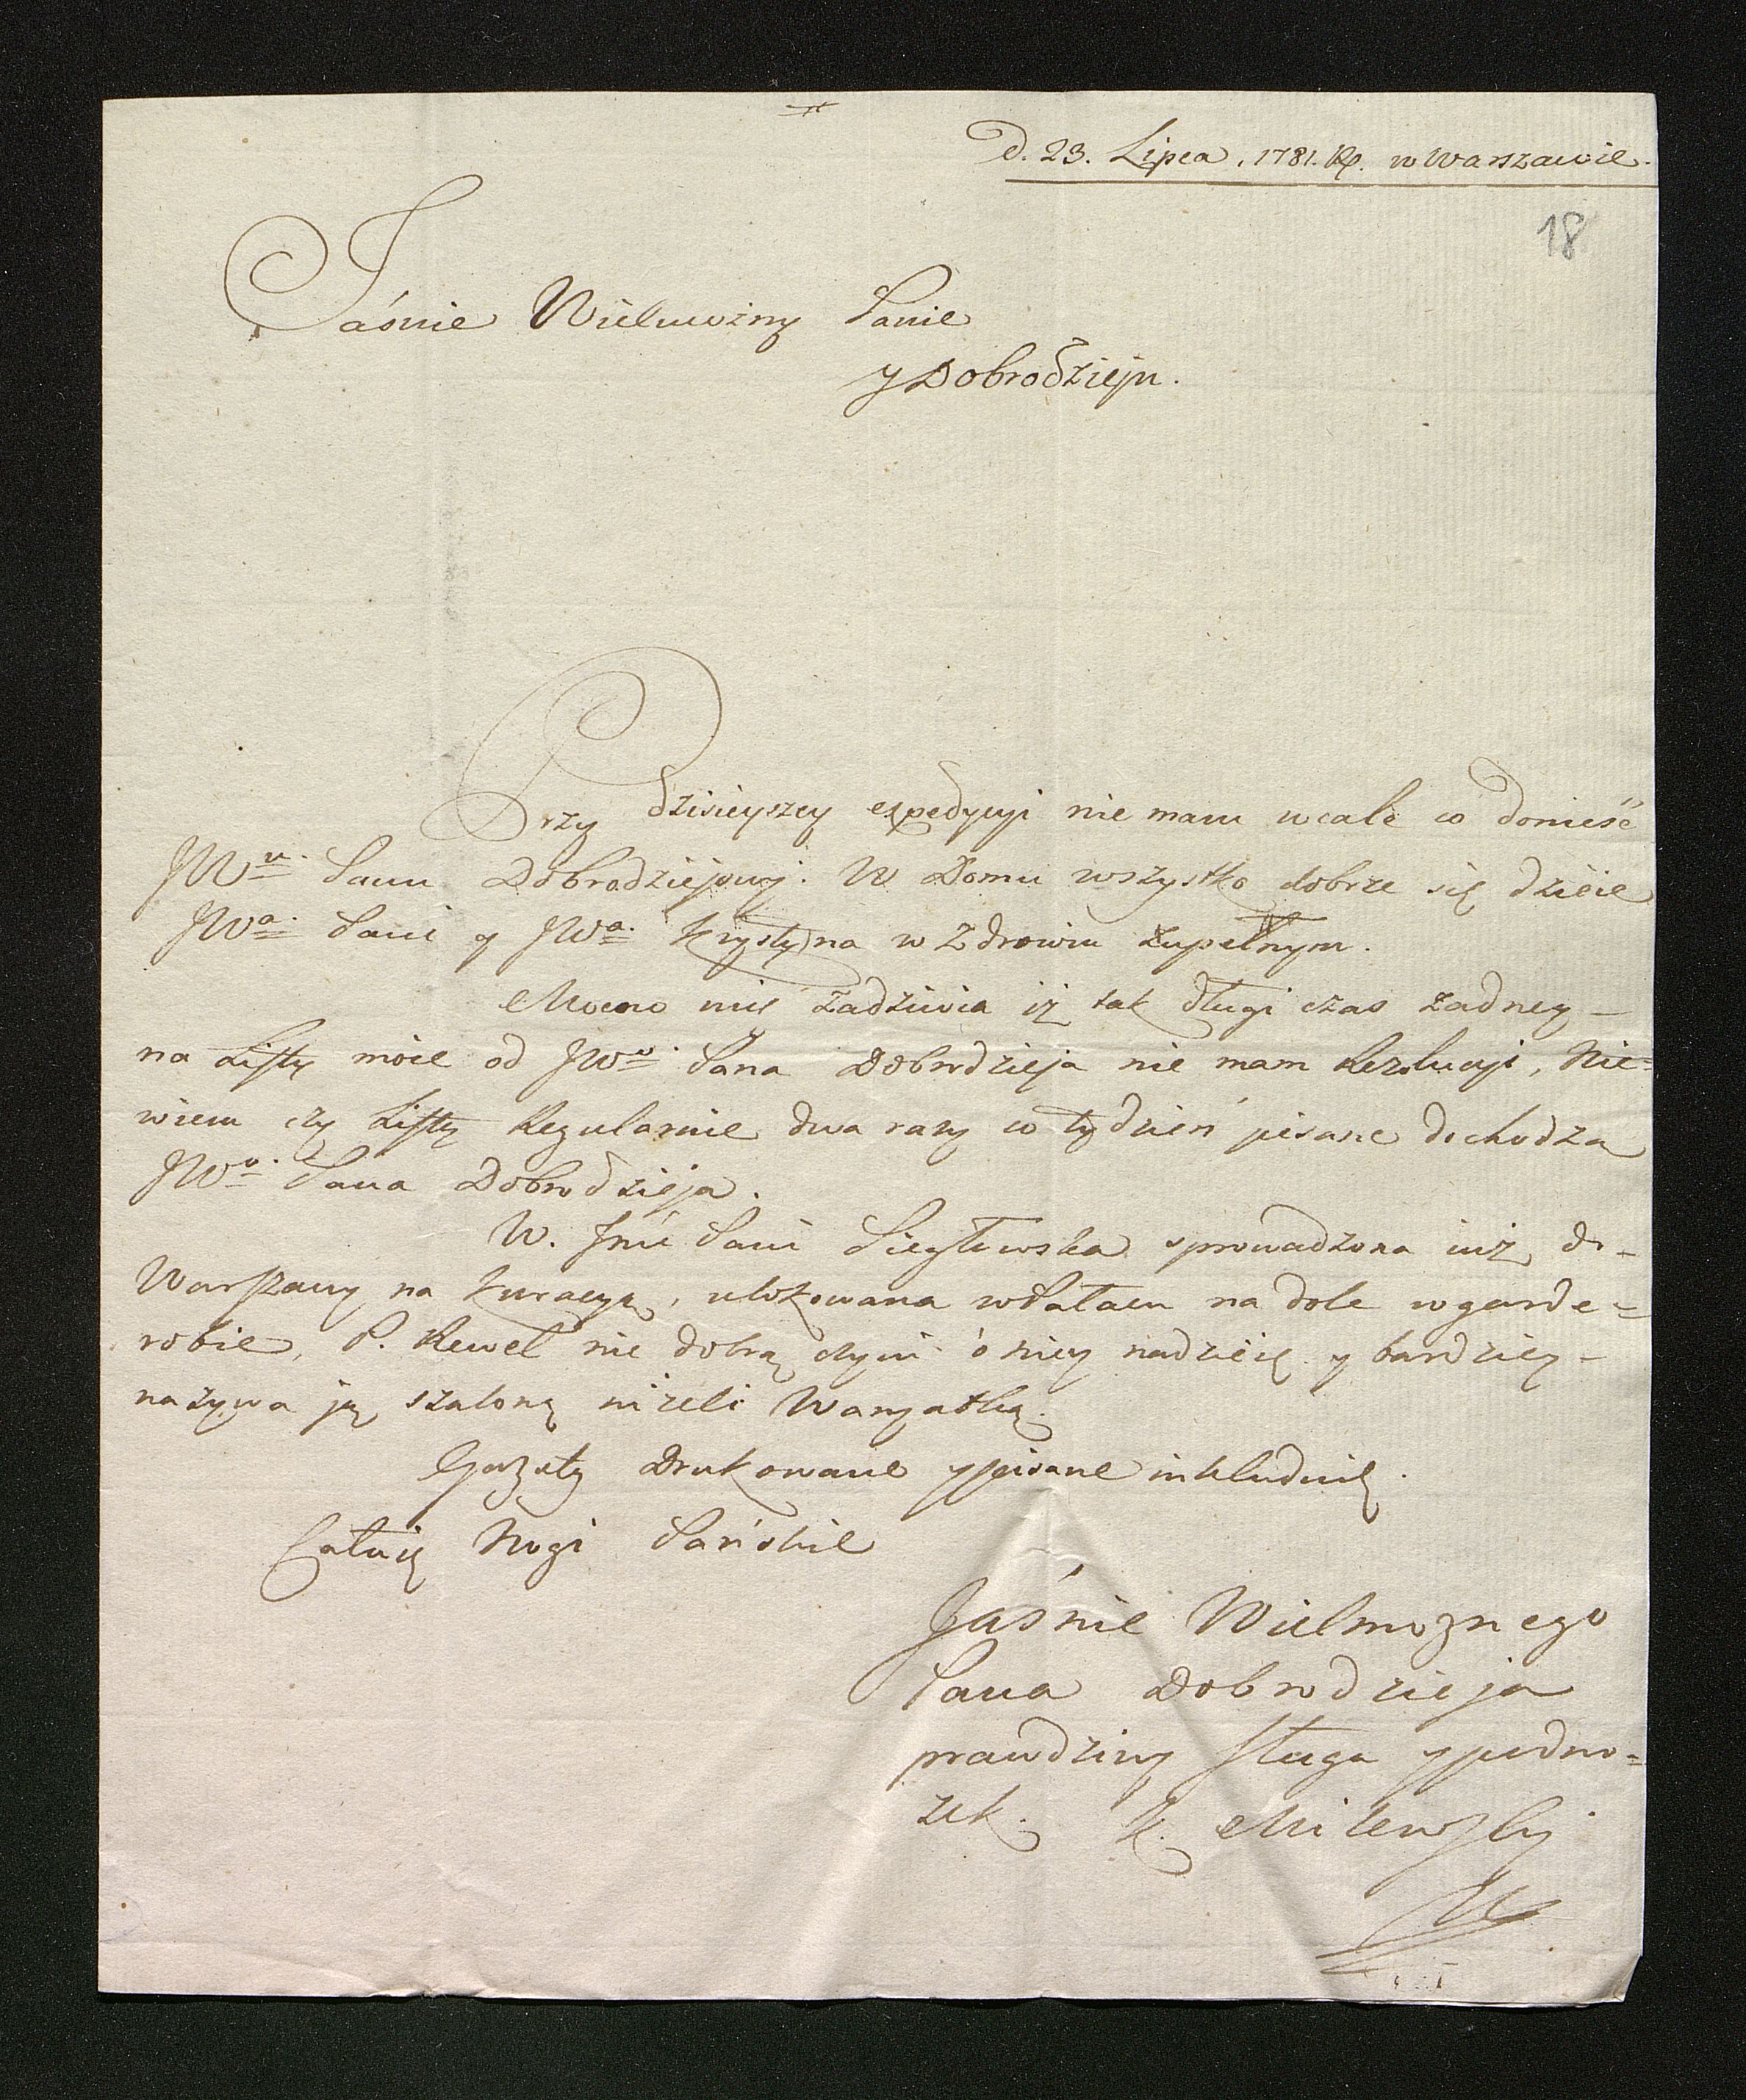 D. 23. Lipca, 1781. Rp. w Warszawie.
18
Jaśnie Wielmożny Panie
y Dobrodzieju.
Przy dzisieyszey expedycyi nie mam wcale co donieść
JWu. Panu Dobrodziejowi. W Domu wszystko dobrze się dzieie
JWa. Pani y JWa. Krystyna w Zdrowiu zupełnym.
Mocno mię zadziwia iż tak długi czas żadney -
na Listy moie od JWo. Pana Dobrodzieja nie mam Rezolucyi, Nie=
wiem czy Listy Regularnie dwa razy w tydzień pisane dochodzą
JWo. Pana Dobrodzieja.
W. Jmć Pani sprowadzona iuż do -
Warszawy na Kuracyą, ulokowana w Pałacu na dole w garde=
robie, P. Rewel nie dobrą czyni o niey nadzieię y bardziey -
nazywa ją szaloną niżeli Waryatką.
Gazety Drukowane y pisane inkluduię.
Całuię Nogi Pańskie
Jaśnie Wielmoznego
Pana Dobrodzieja
prawdziwy sługa y podno=
żek. K. Milewski